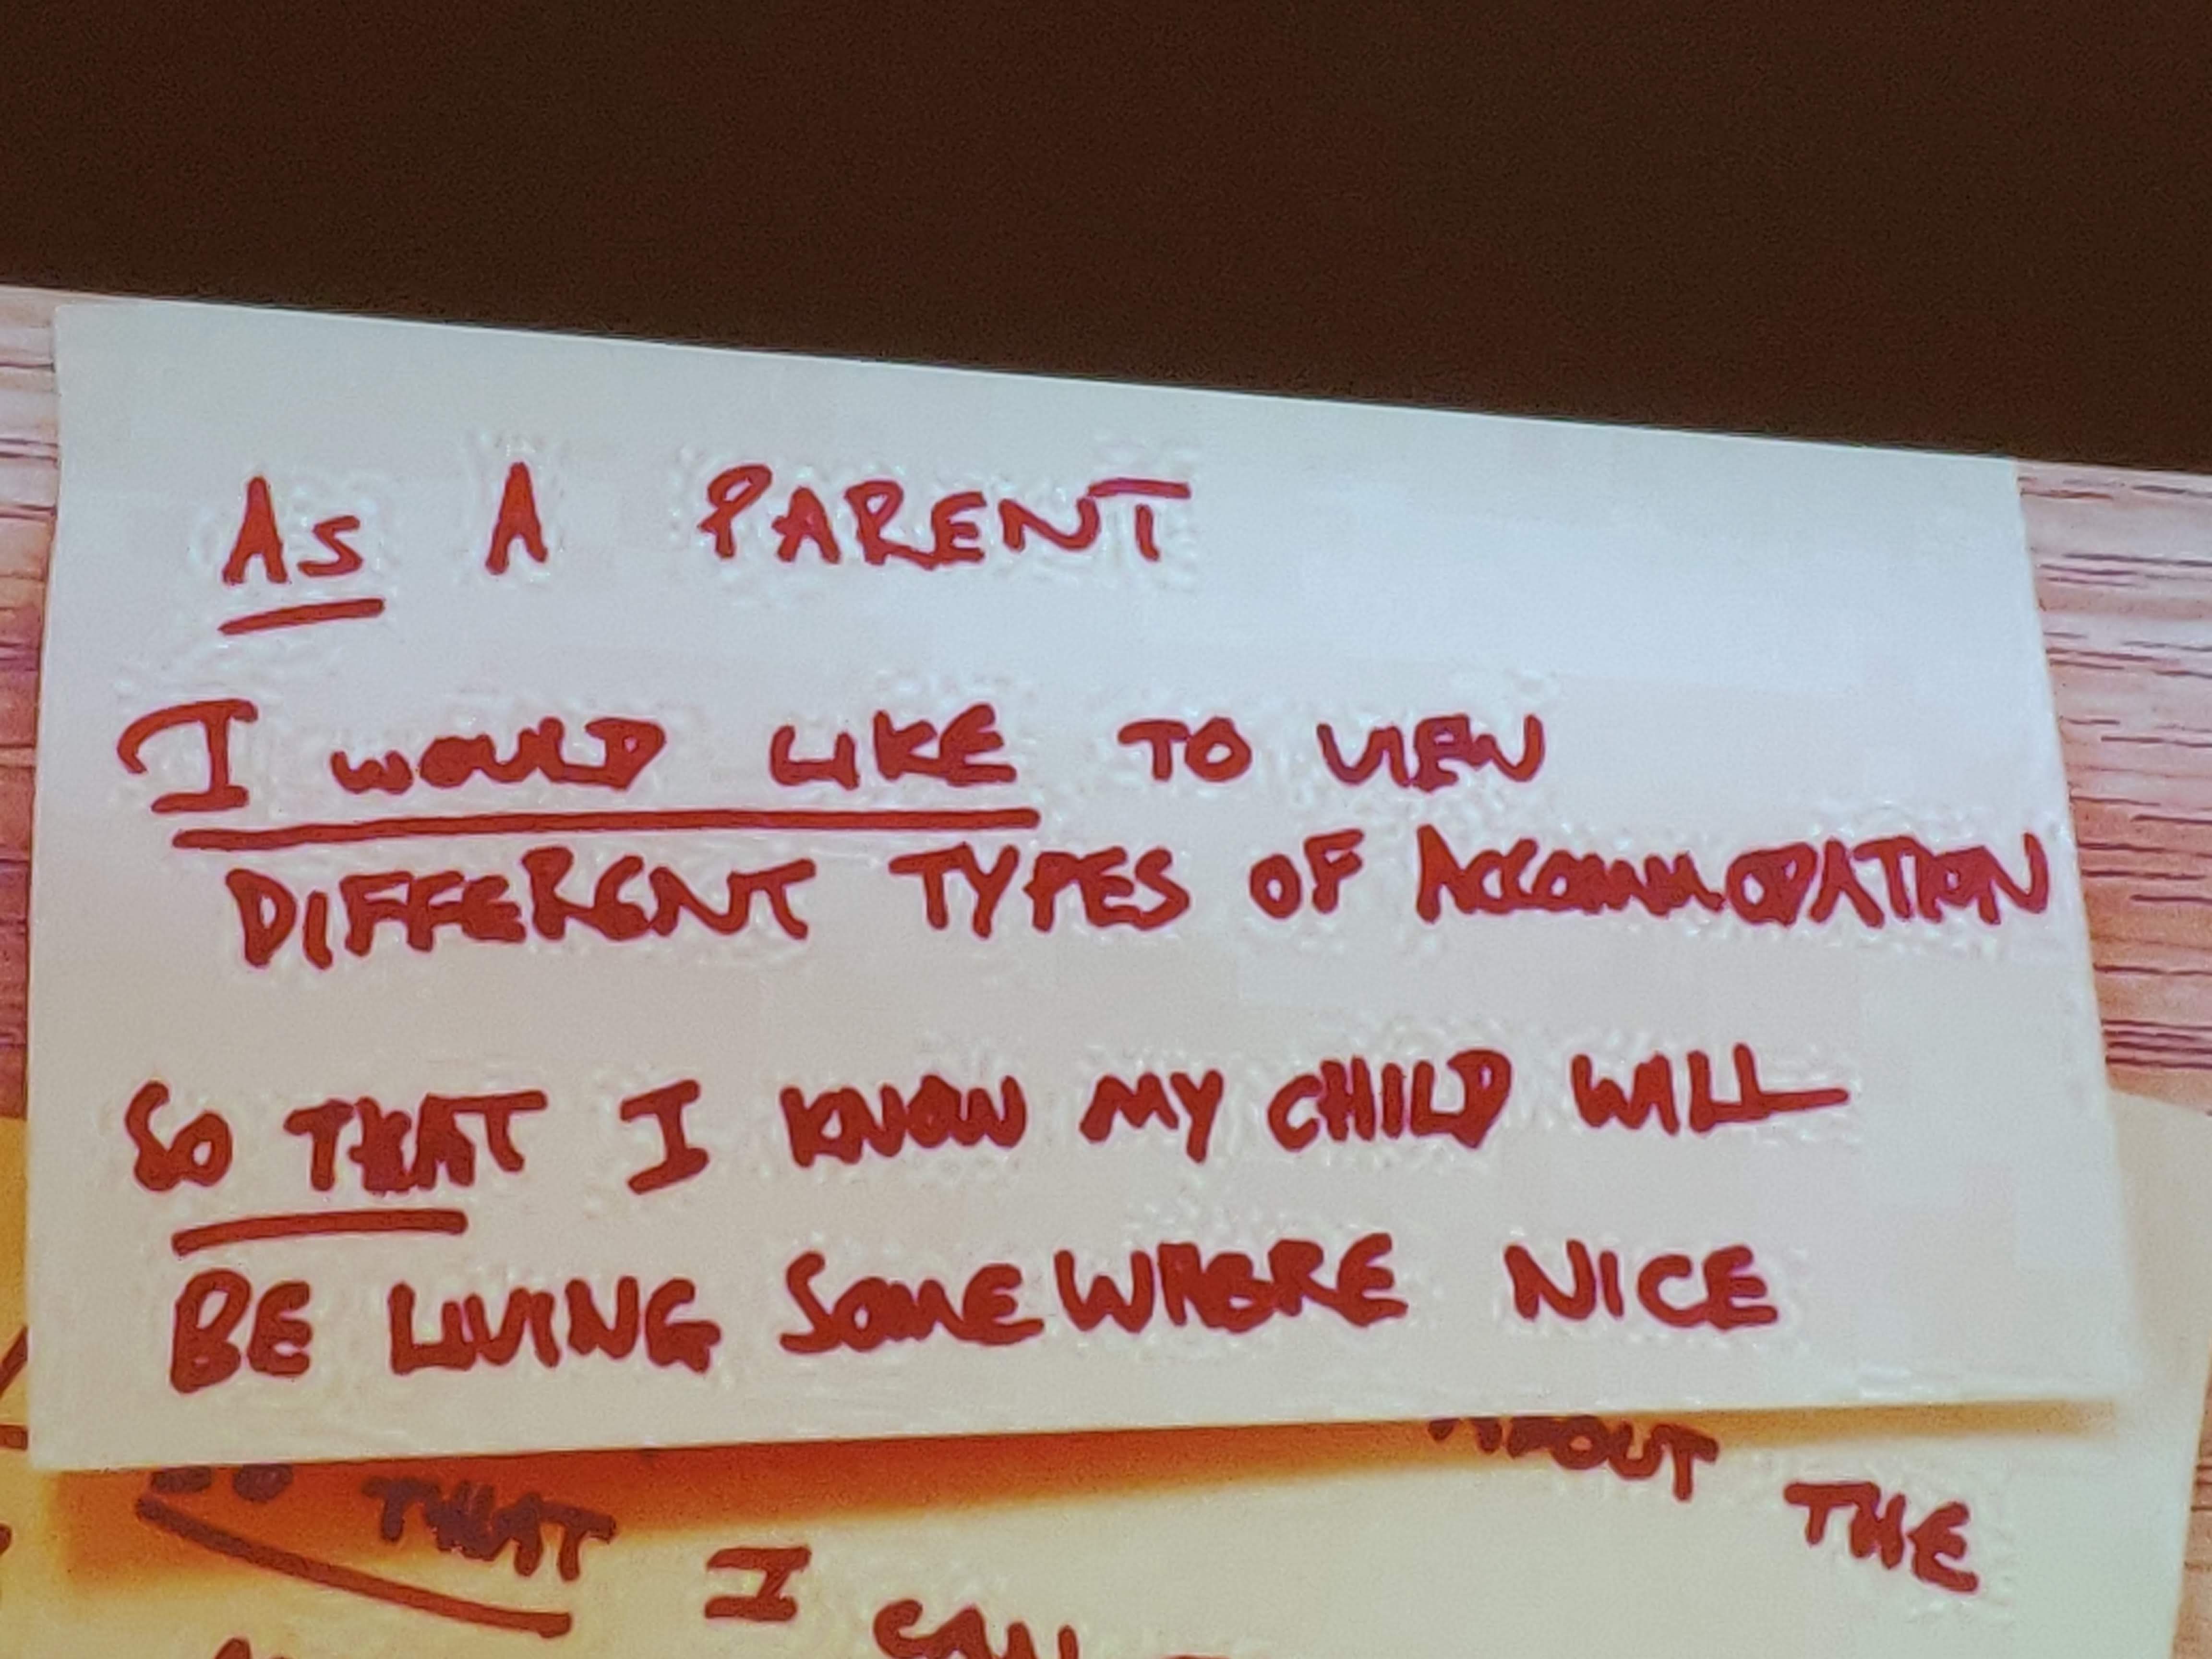 AS A PARENT
I WOULD LIKE TO VIEW
DIFFERENT TYPES OF ACCOMMODATION
SO THAT I KNOW MY CHILD WILL
BE LIVING SOMEWHERE NICE
ABOUT THE
SO THAT I CAN